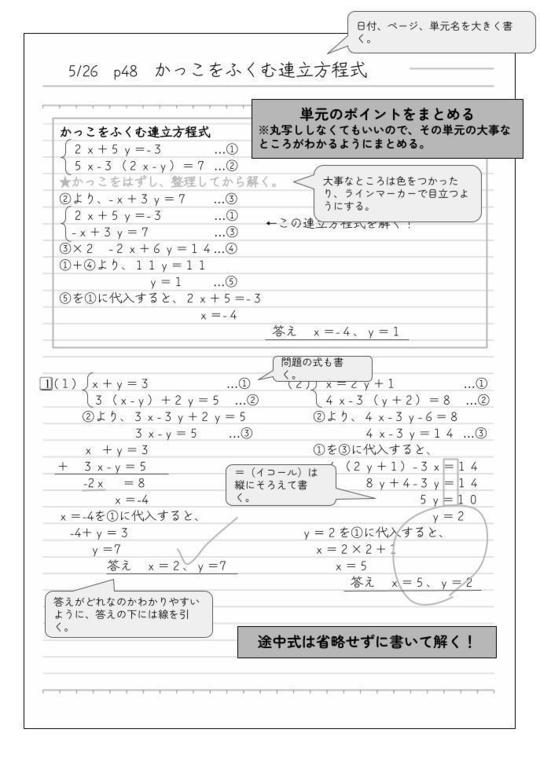 日付、ページ、単元名を大きく書
く。
5/26　p48　かっこをふくむ連立方程式
単元のポイントをまとめる
※丸写ししなくてもいいので、その単元の大事な
ところがわかるようにまとめる。
かっこをふくむ連立方程式
2x+5y=-3 …①
5x-3(2x-y)=7 …②
★かっこをはずし、整理してから解く。
大事なところは色をつかった
り、ラインマーカーで目立つよ
うにする。
②より、-x+3y=7 …③
2x+5y=-3 …①
-x+3y=7 …③
←この連立方程式を解く!
③×2 -2x+6y=14…④
①+④より、11y=11
y=1 …⑤
⑤を①に代入すると、2x+5=-3
x=-4
答え x=-4、y=1
問題の式も書
く。
1(1) x+y=3 …①
3(x-y)+2y=5 …②
②より、3x-3y+2y=5
3x-y=5 …③
x+y=3
+ 3x-y=5
-2x =8
x=-4
x=-4を①に代入すると、
-4+y=3
y=7
答え x=2、y=7
答えがどれなのかわかりやすい
ように、答えの下には線を引
く。
(2) x=2y+1 …①
4x-3(y+2)=8 …②
②より、4x-3y-6=8
4x-3y=14 …③
①を③に代入すると、
=（イコール）は
縦にそろえて書
く。
(2y+1)-3x=14
8y+4-3y=14
5y=10
y=2
y=2を①に代入すると、
x=2×2+1
x=5
答え x=5、y=2
途中式は省略せずに書いて解く！